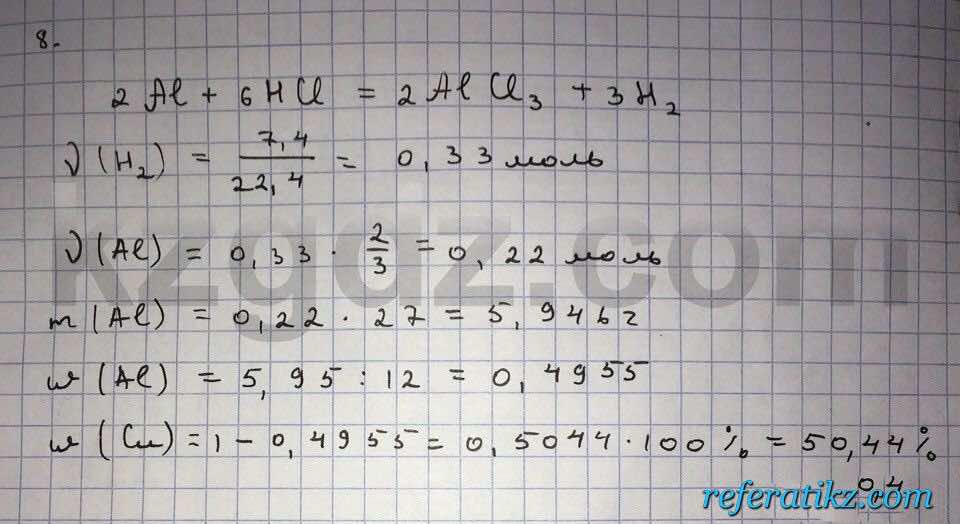 8.
2Al + 6HCl = 2AlCl₃ + 3H₂
ν(H₂) = 7,4/22,4 = 0,33 моль
ν(Al) = 0,33 · 2/3 = 0,22 моль
m(Al) = 0,22 · 27 = 5,946 г
w(Al) = 5,95 : 12 = 0,4955
w(Cu) = 1 - 0,4955 = 0,5044 · 100% = 50,44%
0,4
kzgdz.com
referatikz.com